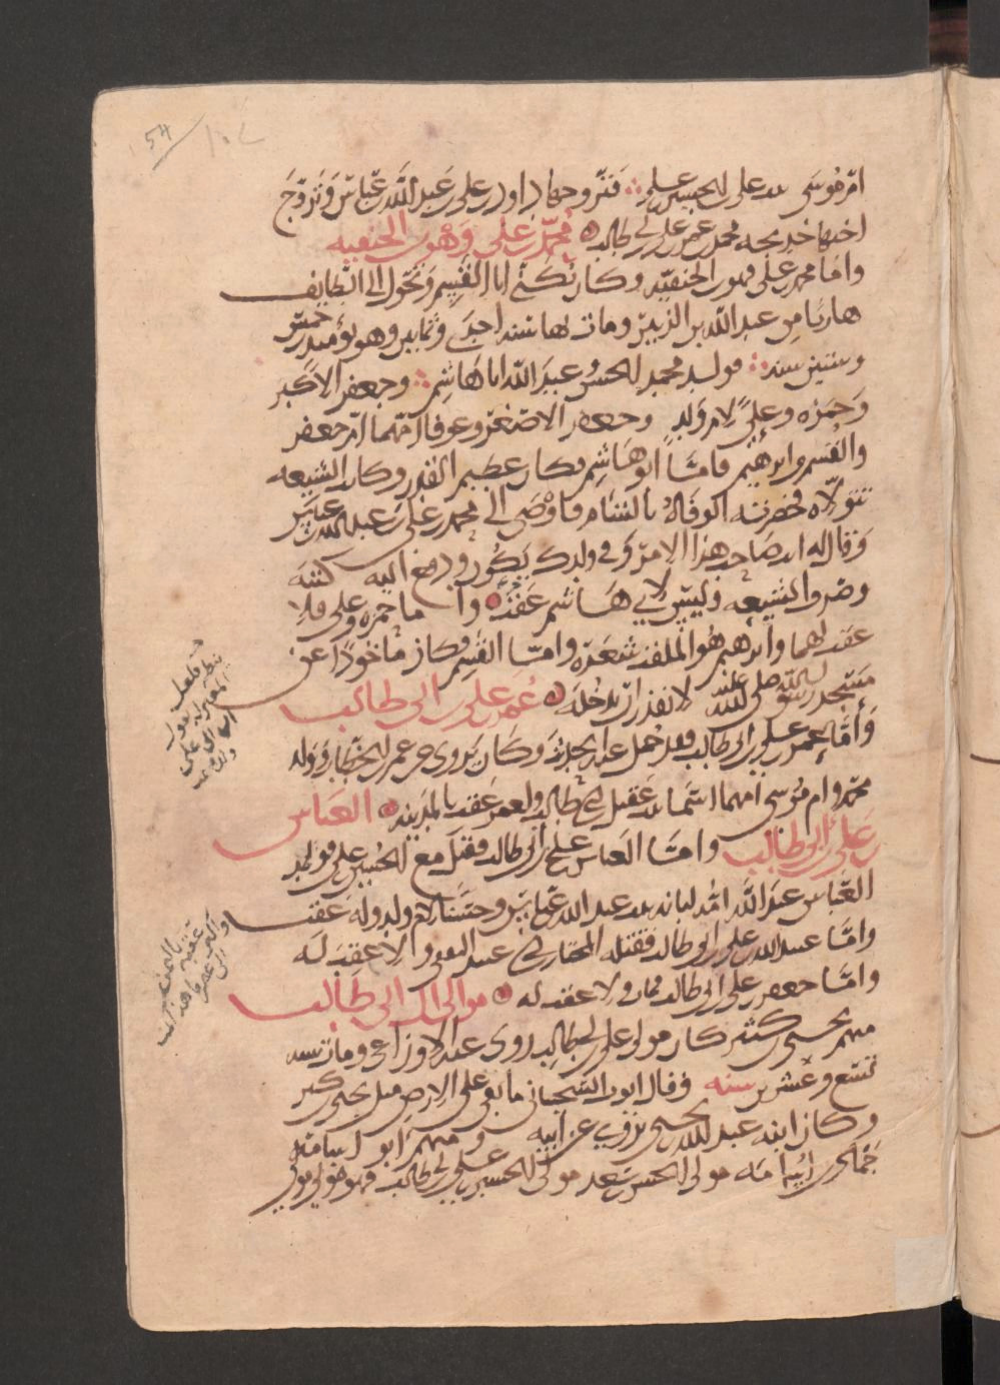 54
ام موسى بنت علي بن الحسين بن علي فتزوجها داود بن علي بن عبد الله بن عباس وتزوج
اختها خديجه محمد بن عمر بن علي بن ابي طالب محمد بن علي وهو بن الحنفيه
واما محمد بن علي فهو بن الحنفيه وكان يكنى ابا القسم وتحول الى الطايف
هاربا من عبد الله بن الزبير ومات بها سنه احدى وثمانين وهو يومئذ بن خمس
وستين سنه فولد محمد الحسن وعبد الله ابا هاشم وجعفر الاكبر
وحمزه وعلي لام ولد وجعفر الاصغر وعونا امهما ام جعفر
والقسم وابرهيم فاما ابو هاشم فكان عظيم القدر وكان الشيعه
تتولاه فحضرته الوفاة بالشام فاوصى الى محمد بن علي بن عبد الله بن عباس
وقال له انت صاحب هذا الامر وفي ولدك يكون ودفع اليه كتبه
وصرف الشيعه وليس لابي هاشم عقب واما حمزه وعلي فلا
عقب لهما وابرهيم هو الملقب شعره واما القسم فكان ماخوذا عن
مسجد رسول الله صلى الله عليه لا يقدر ان يدخله عمر بن علي بن ابي طالب
واما عمر بن علي بن ابي طالب فقد حمل عنه الحديث وكان يروي عن عمر بن الخطاب وولد
محمد وام موسى امهما اسما بنت عقيل بن ابي طالب ولعمر عقب بالمدينه العباس
بن علي بن ابي طالب واما العباس بن علي بن ابي طالب فقتل مع الحسين بن علي فولد
العباس عبد الله امه لبابه بنت عبيد الله بن عباس وحسنا لام ولد وله عقب
واما عبيد الله بن علي بن ابي طالب فقتله المختار بن ابي عبيد الثقفي ولا عقب له
واما جعفر بن علي بن ابي طالب فمات ولا عقب له موالي ال ابي طالب
منهم يحيى بن كثير كان مولى علي بن ابي طالب روى عنه الاوزاعي ومات سنه
تسع وعشرين سنه وقال ايوب السجستاني ما بقي على الارض مثل يحيى بن كثير
وكان ابنه عبد الله بن يحيى يروي عن ابيه ومنهم ابو اسامه
حماد بن اسامه مولى الحسن بن سعد مولى الحسن بن علي بن ابي طالب فهو مولى مولى